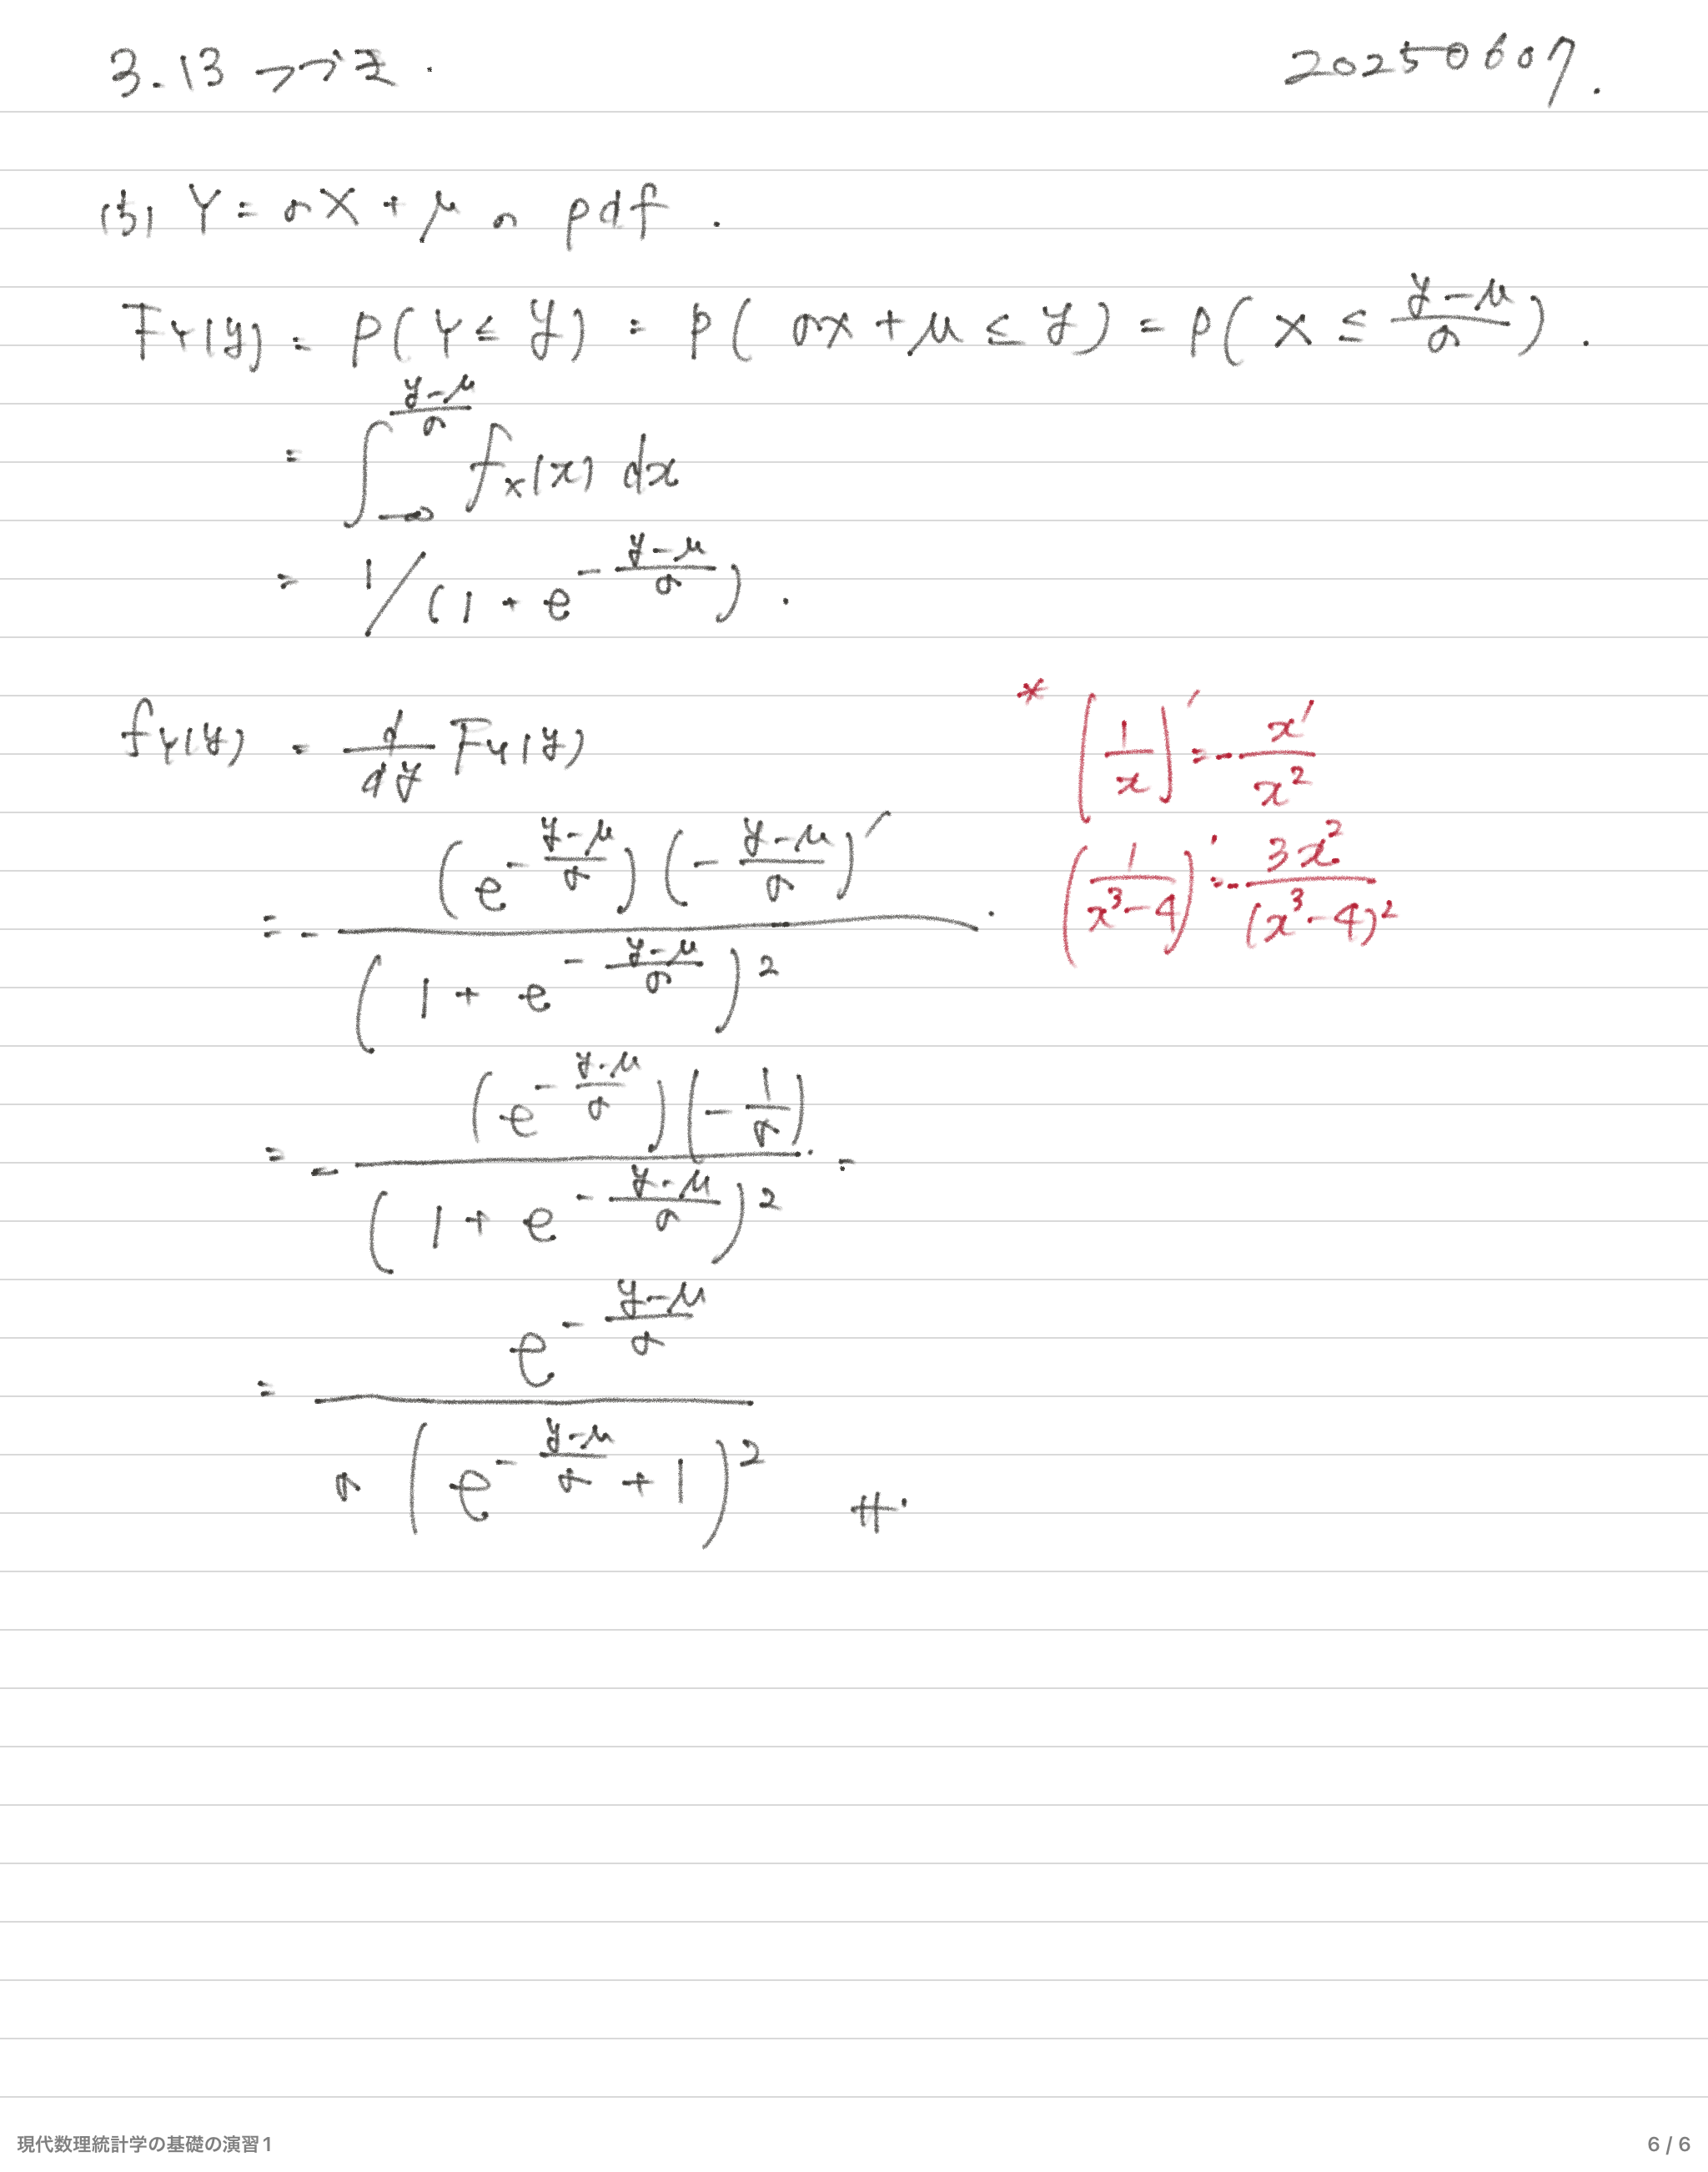 3.13 つづき.
20250607.
(3) Y = σX + μ の pdf.
F_Y(y) = P(Y ≤ y) = P(σX + μ ≤ y) = P(X ≤ \frac{y-μ}{σ}).
= \int_{-∞}^{\frac{y-μ}{σ}} f_X(x) dx
= 1/(1 + e^{-\frac{y-μ}{σ}}).
f_Y(y) = \frac{d}{dy} F_Y(y)
= -\frac{(e^{-\frac{y-μ}{σ}})(-\frac{y-μ}{σ})'}{(1 + e^{-\frac{y-μ}{σ}})^2}.
= -\frac{(e^{-\frac{y-μ}{σ}})(-\frac{1}{σ})}{(1 + e^{-\frac{y-μ}{σ}})^2}.
= \frac{e^{-\frac{y-μ}{σ}}}{σ(e^{-\frac{y-μ}{σ}} + 1)^2} #.
* (\frac{1}{x})' = -\frac{x'}{x^2}
(\frac{1}{x^3-4})' = -\frac{3x^2}{(x^3-4)^2}
現代数理統計学の基礎の演習1
6 / 6